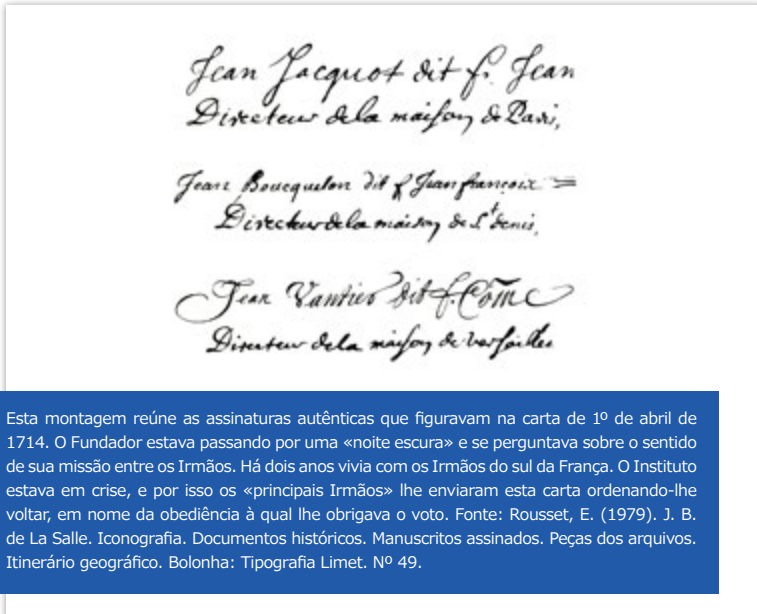 Jean Jacquot dit f. Jean
Directeur dela maison de Paris,
Jean Boucquelon dit f Jean françoix =
Directeur dela maison de St denis,
Jean Vantier dit f. Côme
Directeur dela maison de versailles
Esta montagem reúne as assinaturas autênticas que figuravam na carta de 1º de abril de
1714. O Fundador estava passando por uma «noite escura» e se perguntava sobre o sentido
de sua missão entre os Irmãos. Há dois anos vivia com os Irmãos do sul da França. O Instituto
estava em crise, e por isso os «principais Irmãos» lhe enviaram esta carta ordenando-lhe
voltar, em nome da obediência à qual lhe obrigava o voto. Fonte: Rousset, E. (1979). J. B.
de La Salle. Iconografia. Documentos históricos. Manuscritos assinados. Peças dos arquivos.
Itinerário geográfico. Bolonha: Tipografia Limet. Nº 49.